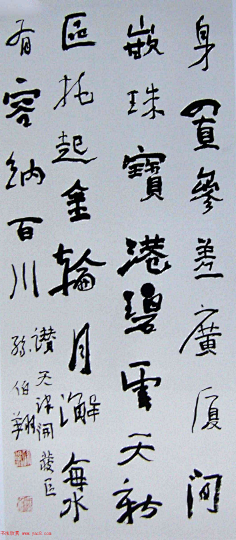 身置參差廣廈間
嵌珠寶港碧雲天新
區托起金輪月澥海
有容納百川
讚天津開發區
孫伯翔